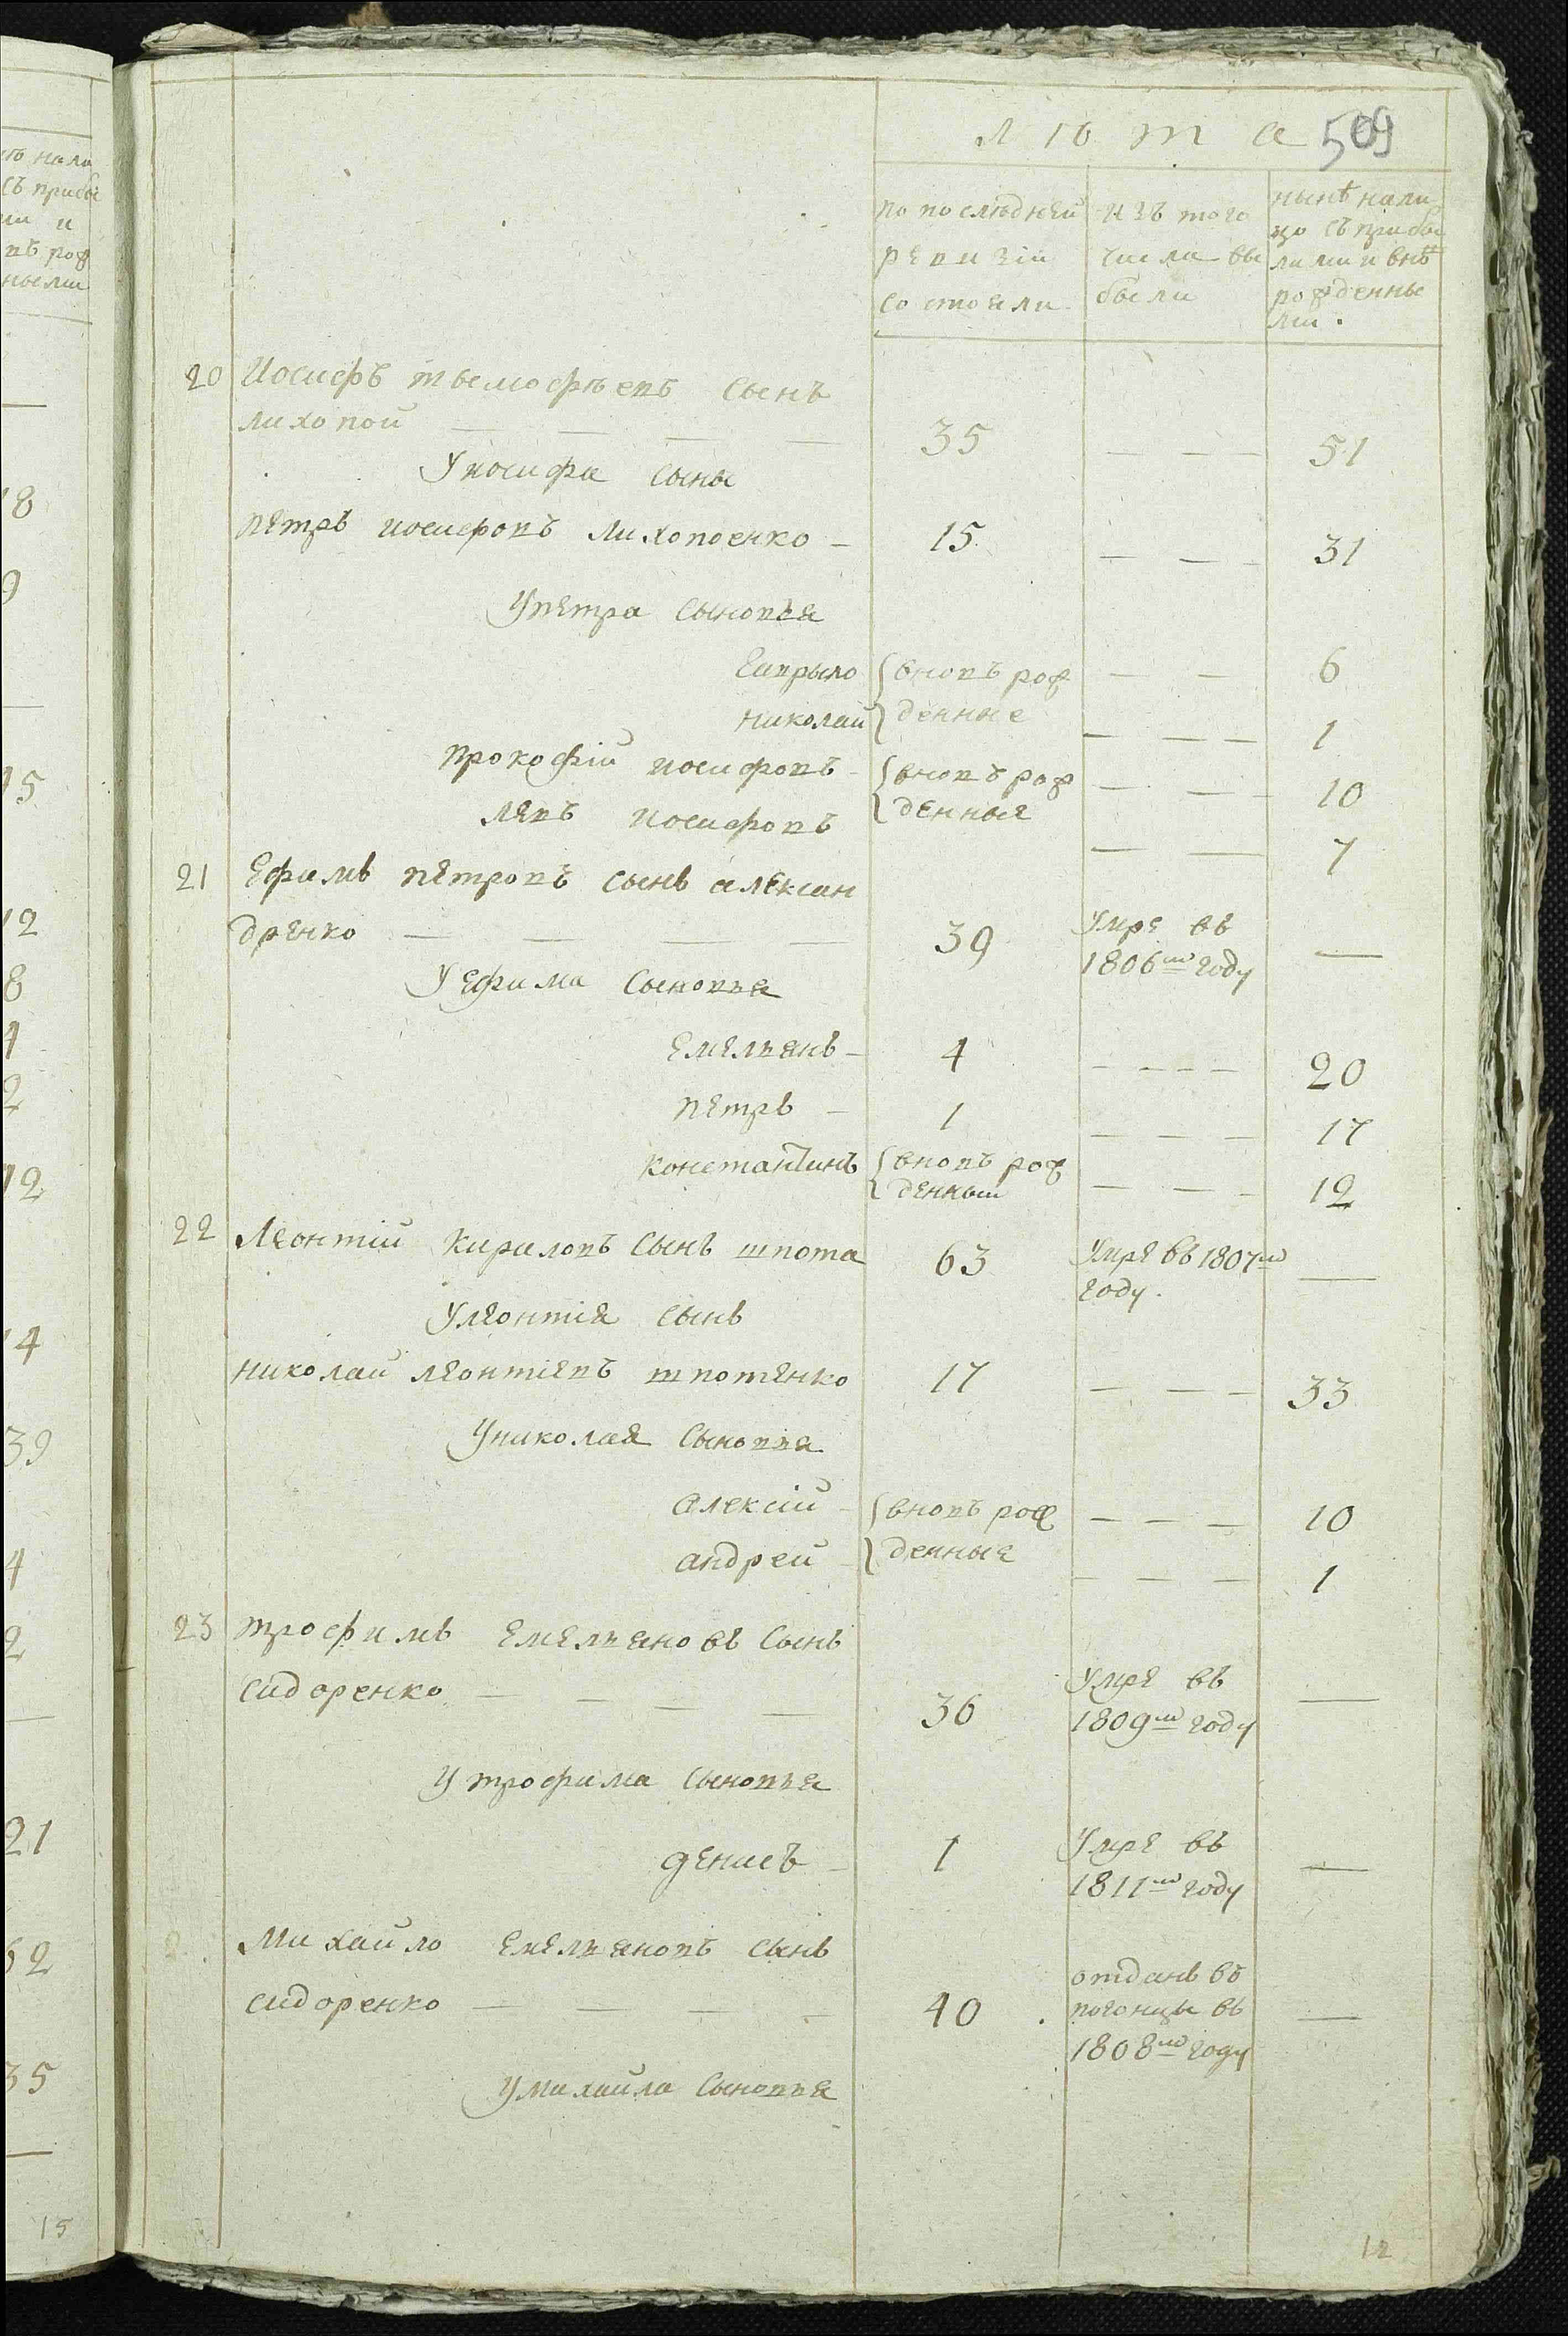 лѣта 509
по послѣдней
ревизіи
состояли
изъ того
числа вы
были
нынѣ нали
цо съ прибы
лыми и внѣ
рожденны
ми.
20 Иосифъ тымофѣевъ сынъ
лиховой — — — — 35 — — — 51
У иосифа сыны
петръ иосифовъ лиховоенко — 15 — — — 31
У петра сыновья
гаврыло { вновъ рож — — 6
николай } денние — — — 1
прокофій иосифовъ { вновъ рож — — — 10
левъ иосифовъ { денные — — 7
21 Ефимъ петровъ сынъ алексан
дренко — — — — 39 Умре въ
1806м году —
У ефима сыновья
емельянъ — 4 — — — — 20
петръ — 1 — — — 17
константинъ { вновъ рож
{ денный — — — 12
22 Леонтій кириловъ сынъ шпота 63 Умре въ 1807м
году. —
У леонтія сынъ
николай леонтіевъ шпотенко 17 — — — 33
У николая сыновья
алексій — { вновъ рож — — — 10
андрей — } денные — — — 1
23 трофимъ емельяновъ сынъ
сидоренко — — — — 36 Умре въ
1809м году —
У трофима сыновья
денисъ — 1 Умре въ
1811м году —
2 Михайло емельяновъ сынъ
сидоренко — — — — 40 отданъ въ
погонцы въ
1808м году —
У михайла сыновья
12
нали
съ прибы
и
въ рож
ными
18
9
15
12
8
4
2
12
14
39
4
2
21
62
35
15